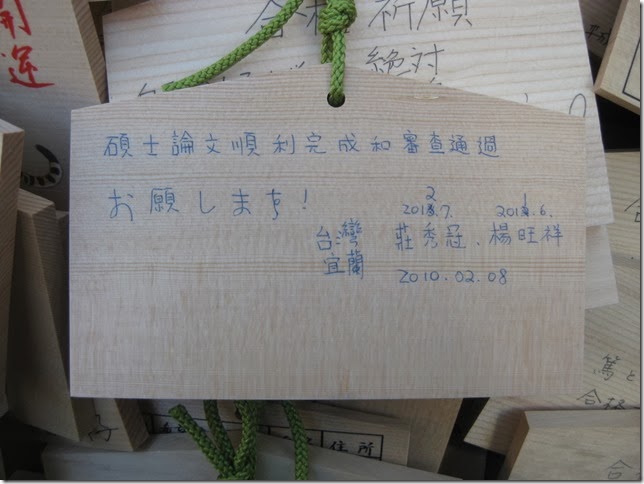 開運
合格 祈願
絶対
碩士論文順利完成和審查通過
お願いします!
台灣 莊秀冠、楊旺祥
宜蘭 2010.02.08
合格
住所
合